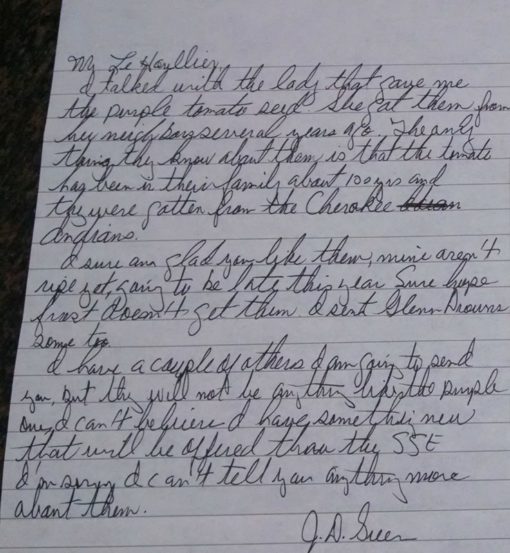 My Le Hoyllier,
I talked with the lady that gave me
the purple tomato seed She gat them from
her neighbors several years ago. The only
thing they know about them is that the tomato
has been in their family about 100 yrs and
they were gotten from the Cherokee
Indians.
I sure am glad you like them, mine aren't
ripe yet, going to be late this year Sure hope
frost doesn't get them I sent Glenn Drowns
some too
I have a couple of others I am going to send
you, but they will not be anything like the purple
one, I can't believe I have something new
that will be offered thru the SSE
I'm sorry I can't tell you anything more
about them.
J.D. Green